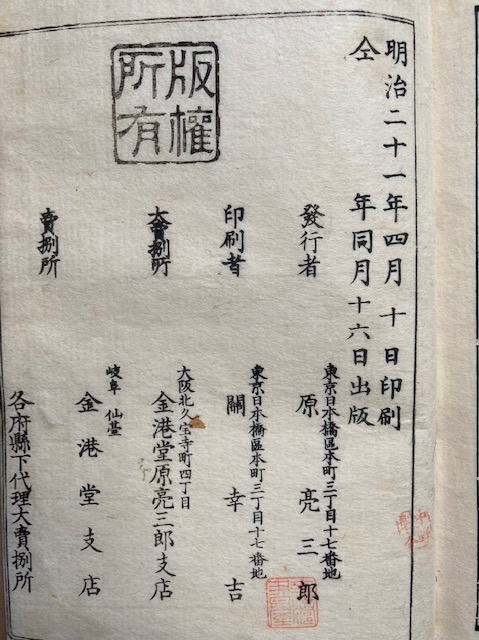 明治二十一年四月十日印刷
仝年同月十六日出版
版權
所有
發行者
東京日本橋區本町三丁目十七番地
原亮三郎
印刷者
東京日本橋區本町三丁目十七番地
關幸吉
大賣捌所
大阪北久宝寺町四丁目
金港堂原亮三郎支店
岐阜 仙臺
金港堂支店
賣捌所
各府縣下代理大賣捌所